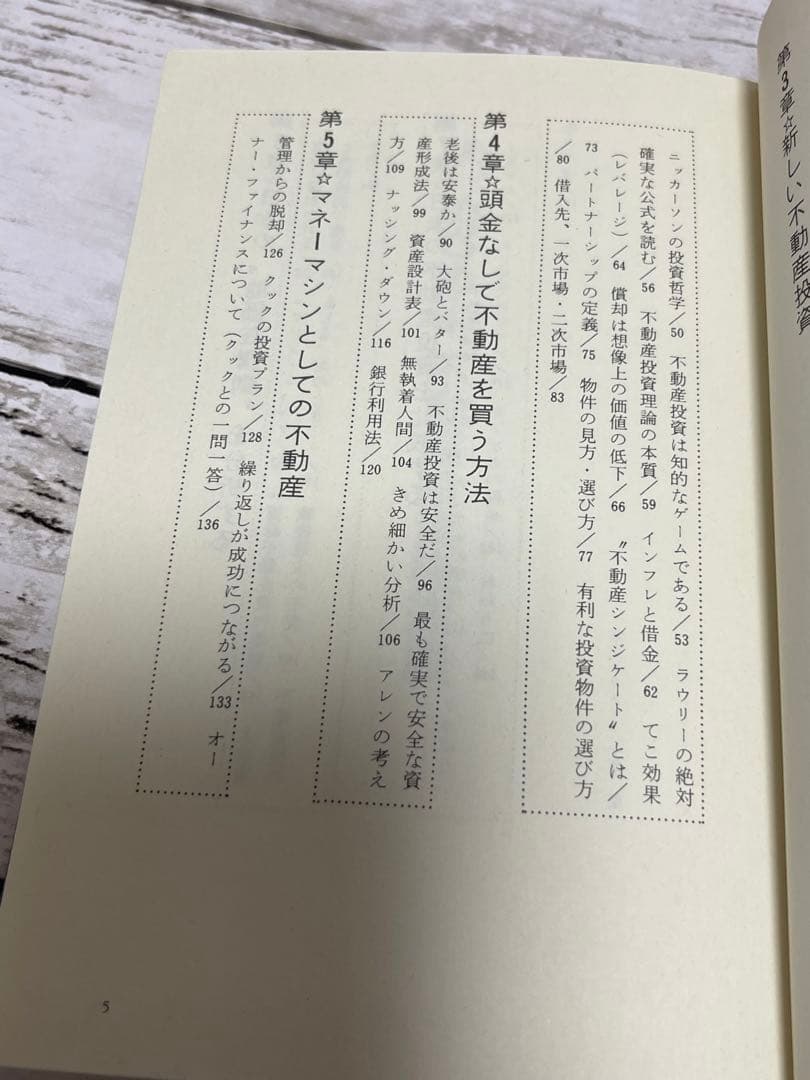 第3章☆新しい不動産投資
ニッカーソンの投資哲学/50 不動産投資は知的なゲームである/53 ラウリーの絶対
確実な公式を読む/56 不動産投資理論の本質/59 インフレと借金/62 てこ効果
(レバレージ)/64 償却は想像上の価値の低下/66 〝不動産シンジケート〟とは/
73 パートナーシップの定義/75 物件の見方・選び方/77 有利な投資物件の選び方
/80 借入先、一次市場・二次市場/83
第4章☆頭金なしで不動産を買う方法
老後は安泰か/90 大砲とバター/93 不動産投資は安全だ/96 最も確実で安全な資
産形成法/99 資産設計表/101 無執着人間/104 きめ細かい分析/106 アレンの考え
方/109 ナッシング・ダウン/116 銀行利用法/120
第5章☆マネーマシンとしての不動産
管理からの脱却/126 クックの投資プラン/128 繰り返しが成功につながる/133 オー
ナー・ファイナンスについて(クックとの一問一答)/136
5